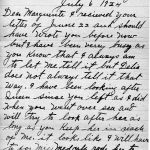 July 6 1924
Dear Marguerite I recieved your
letter of June 22 and should
have wrote you before now
but have been very busy as
you know that I always am
to let me tell it but
does not always tell it that
way. I have been looking after
since you left as I did
when you went over sea and
will try to look after her as
long as you keep in
of me. I look like I will have
to